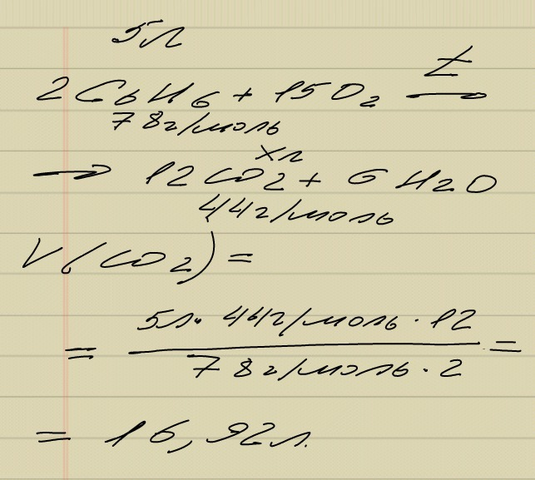 5л
2C6H6 + 15O2 t→
78г/моль
хл
→ 12CO2 + 6H2O
44г/моль
V(CO2) =
= 5л · 44г/моль · 12 / 78г/моль · 2 =
= 16,92л.